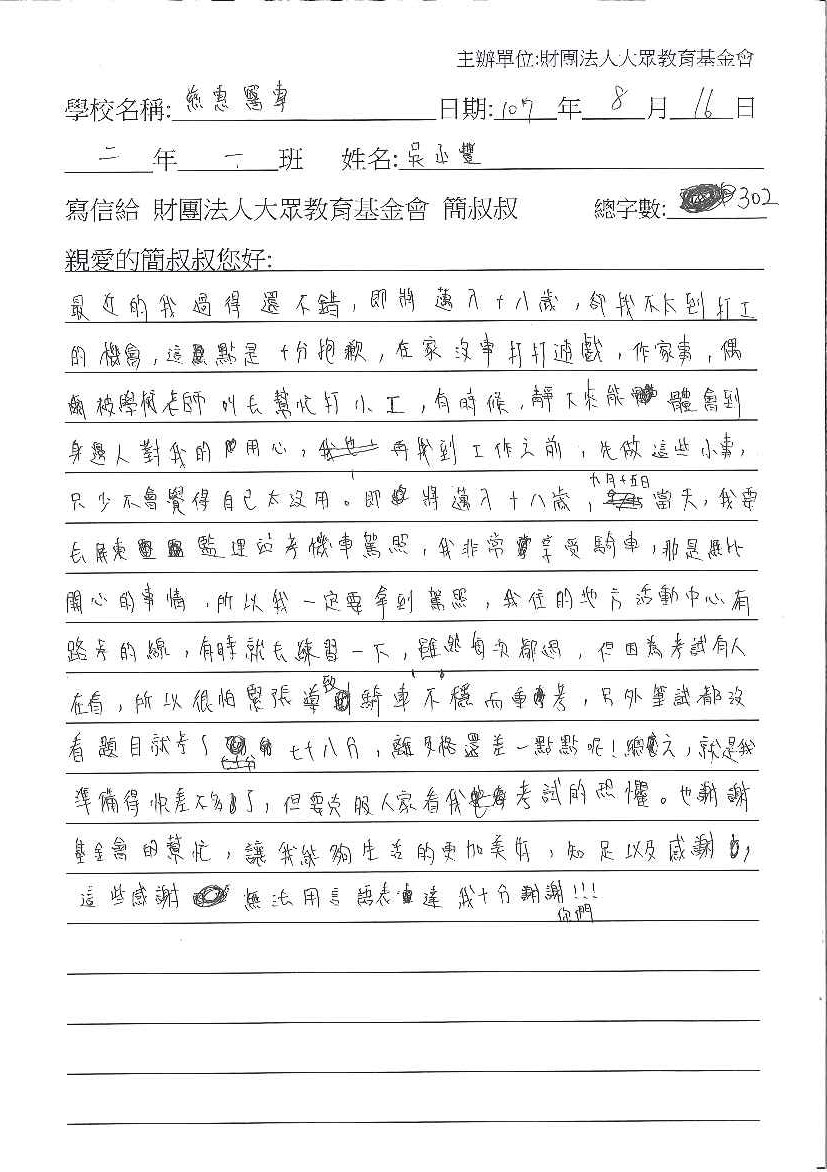 主辦單位:財團法人大眾教育基金會
學校名稱: 慈惠醫專 日期: 107 年 8 月 16 日
二 年 一 班 姓名: 吳丞豐
寫信給 財團法人大眾教育基金會 簡叔叔 總字數: 302
親愛的簡叔叔您好:
最近的我過得還不錯,即將邁入十八歲,卻找不太到打工
的機會,這點是十分抱歉,在家沒事打打遊戲,作家事,偶
爾被學校老師叫去幫忙打小工,有時候,靜下來能體會到
身邊人對我的用心,再找到工作之前,先做這些小事,
只少不會覺得自己太沒用。即將邁入十八歲,九月十五日當天,我要
去屏東監理站考機車駕照,我非常享受騎車,那是應比
開心的事情,所以我一定要拿到駕照,我住的地方活動中心有
路考的線,有時就去練習一下,雖然每次都過,但因為考試有人
在看,所以很怕緊張導致騎車不穩而重考,另外筆試都沒
看題目就考了七十八分,離及格還差一點點呢!總之,就是我
準備得快差不多了,但要克服人家看我考試的恐懼。也謝謝
基金會的幫忙,讓我能夠生活的更加美好,知足以及感謝,
這些感謝無法用言語表達 我十分謝謝你們!!!